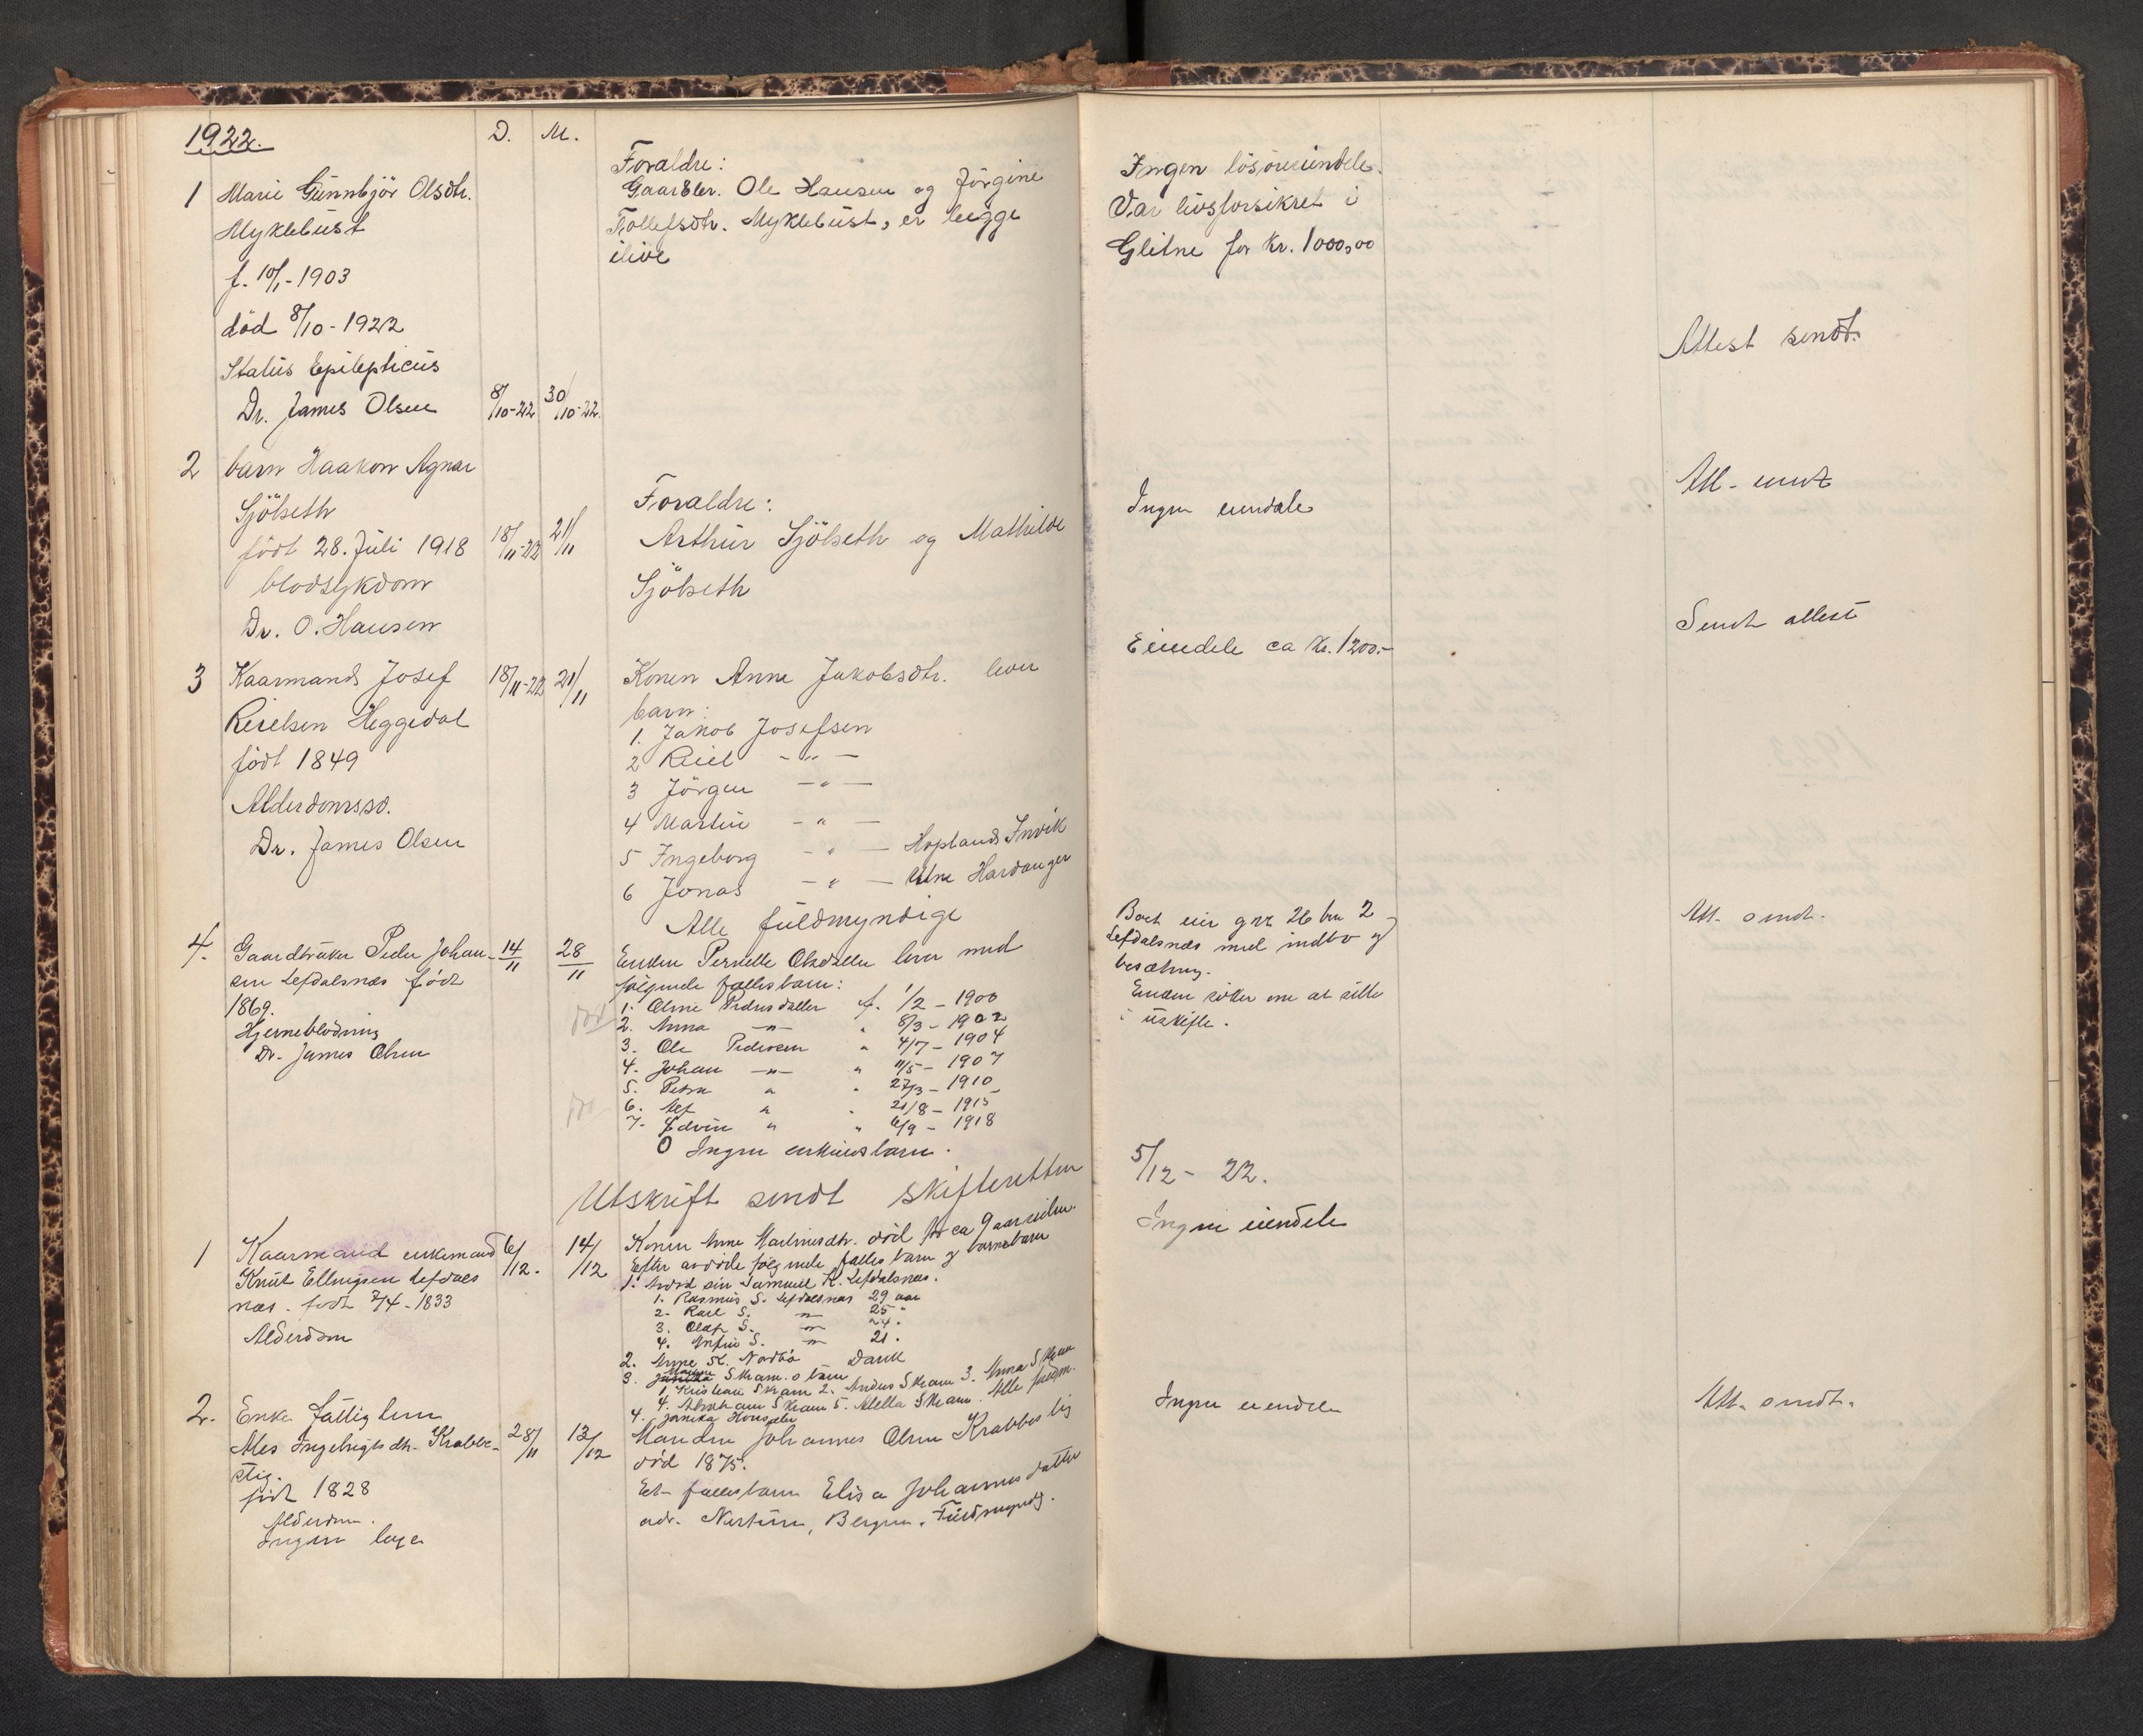 1922.
D. M.
1 Marie Gunnbjör Olsdtr.
Myklebust
f. 10/1-1903
död 8/10-1922
Status Epilepticus
Dr. James Olsen 8/10-22 30/10-22.
Foraldre:
Gaardbr. Ole Hansen og Jörgine
Tollefsdtr. Myklebust, er begge
ilive
Ingen lösöreeiendele.
Var livsforsikret i
Glitne for Kr. 1000,00
Attest sendt.
2 barn Haakon Agnar
Sjölseth
født 28. Juli 1918 18/11-22 21/11
blodsykdom
Dr. O. Hansen
Foraldre:
Arthur Sjölseth og Mathilde
Sjölseth
Ingen eiendele
Att. sendt
3 Kaarmand Josef
Reielsen Heggedal
født 1849
Alderdomssv.
Dr. James Olsen
18/11-22 21/11
Konen Anne Jakobsdtr. lever
barn:
1. Jakob Josefsen
2 Reiel - " -
3 Jörgen - " -
4 Martin - " -
5 Ingeborg - " - Hopland Invik
6 Jonas - " - Utne Hardanger
Alle fuldmyndige
Eiendele ca Kr. 1200.-
Sendt attest
4. Gaardbruker Peder Johan-
sen Lefdalsnæs født
1869.
Hjerneblødning
Dr. James Olsen
14/11 28/11
Enken Pernelle Olsdatter lever med
følgende fællesbarn:
1. Oline Pedersdatter f. 1/2 - 1900
død 2. Anna -"- " 8/3 - 1902
3. Ole Pedersen " 4/7 - 1904
4. Johan -"- " 11/5 - 1907
5. Petra " " 27/3 - 1910
død 6. Alf " " 21/8 - 1915
7. Edvin " " 6/9 - 1918
0 Ingen enkeltbarn.
Utskrift sendt skifteretten
Boet eier gnr 26 bnr 2
Lefdalsnæs med indbo og
besætning.
Enken søker om at sitte
i uskifte.
Att. sendt.
5/12 - 22.
1 Kaarmand enkemand
Knut Ellingsen Lefdals
næs. født 7/4 - 1833
Alderdom
6/12. 14/12
Konen Anne Martinusdtr. død for ca 9 aar siden.
Efter avdøde følgende fælles barn og barnebarn
1. Avdød søn Samuel K. Lefdalsnæs.
1. Rasmus S. Lefdalsnæs 29 aar
2. Karl S. -"- 25 "
3. Olaf S. -"- 24 "
4. Anfin S. -"- 21 "
2. Anne K. Nordbø
3. Skram. 0 barn
1. Kristian Skram 2. Anders Skram 3. Anna Skram
4. Abraham Skram 5. Alette Skram. Alle fuldm.
4. Janika
Ingen eiendele
2. Enke fattiglem
Ales Ingebrigtsdtr. Krabbe-
stig.
født 1828
Alderdom.
Ingen læge
28/11 13/12
Manden Johannes Olsen Krabbestig
død 1875.
Et fællesbarn Elisa Johannesdatter
adr. Nesttun, Bergen. Fuldmyndig.
Ingen eiendele
Att. sendt.